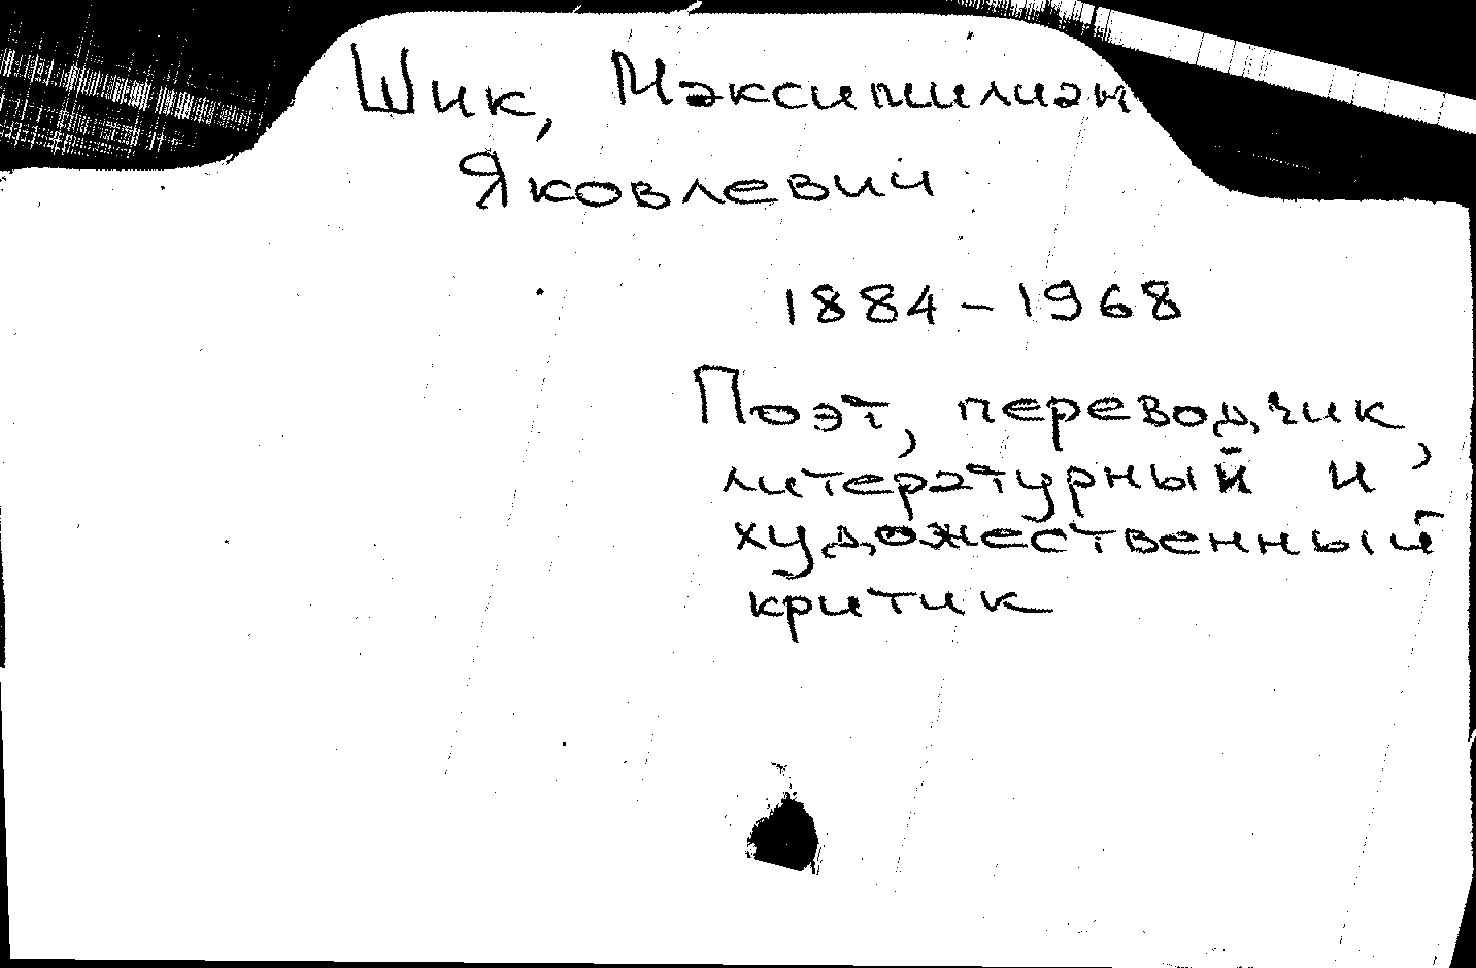 Шик, Максимилиан
Яковлевич
1884-1968
Поэт, переводчик,
литературный и
художественный
критик